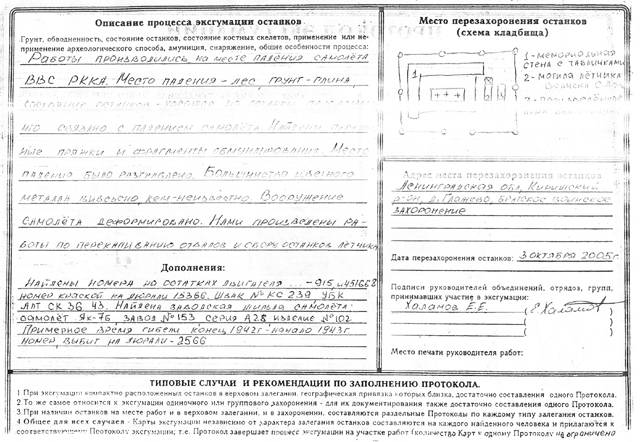 Описание процесса эксгумации останков
Грунт, обводненность, состояние останков, состояние костных скелетов, применение или неприменение археологического способа, амуниция, снаряжение, общие особенности процесса:
Работы производились на месте падения самолёта
ВВС РККА. Место падения - лес, грунт - глина,
состояние останков -
что связано с падением самолёта. Найдены
ные пряжки и фрагменты обмундирования. Место
падения было разграблено. Большинство цветного
металла вывезено, кем - неизвестно. Вооружение
самолёта деформировано. Нами произведены ра-
боты по перекапыванию отвалов и сборе останков лётчика
Дополнения:
Найдены номера на остатках двигателя ... -915, и 451668
номер краской на дюрали 15366. ШВАК № КС 239 УБК
АПТ СК 36 43. Найдена заводская шильда самолёта:
самолёт Як-7б, завод № 153 серия А28 изделие № 102
Примерное время гибели конец 1942г - начало 1943г.
номер, выбит на дюрали - 2566
Место перезахоронения останков
(схема кладбища)
1 - мемориальная
стена с табличками
2 - могила лётчика
Адрес места перезахоронения останков
Ленинградская обл, Киришский
р-он, д. Глажево, братское воинское
захоронение
Дата перезахоронения останков: 3 октября 2005г
Подписи руководителей объединений, отрядов, групп,
принимавших участие в эксгумации:
Халамов Е.Е. (Е. Халамов)
Место печати руководителя работ:
ТИПОВЫЕ СЛУЧАИ И РЕКОМЕНДАЦИИ ПО ЗАПОЛНЕНИЮ ПРОТОКОЛА.
1. При эксгумации компактно расположенных останков в верховом залегании, географическая привязка которых близка, достаточно составления одного Протокола.
2. То же самое относится к эксгумации одиночного или группового захоронения - для их документирования также достаточно составления одного Протокола.
3. При наличии останков на месте работ и в верховом залегании, и в захоронении, составляются раздельные Протоколы по каждому типу залегания останков.
4. Общее для всех случаев - Карты эксгумации независимо от характера залегания останков составляются на каждого найденного человека и прилагаются к
соответствующему Протоколу эксгумации; т.е. Протокол завершает процесс эксгумации на участке работ (количество Карт к одному Протоколу не ограничено